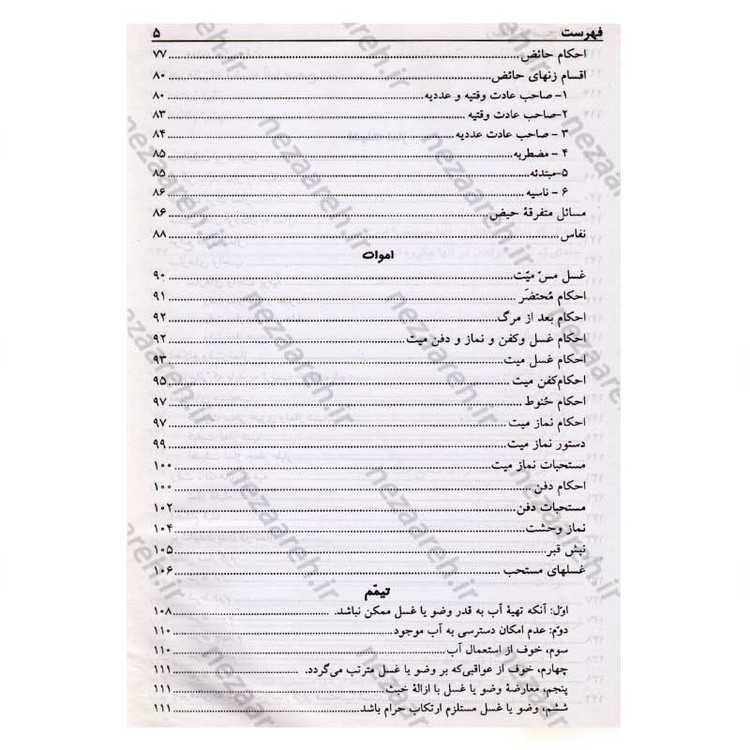 فهرست ۵
احکام حائض ۷۷
اقسام زنهای حائض ۸۰
۱- صاحب عادت وقتیه و عددیه ۸۰
۲-صاحب عادت وقتیه ۸۳
۳ - صاحب عادت عددیه ۸۴
۴ - مضطربه ۸۵
۵-مبتدئه ۸۵
۶ - ناسیه ۸۶
مسائل متفرقهٔ حیض ۸۶
نفاس ۸۸
اموات
غسل مسّ میّت ۹۰
احکام مُحتضَر ۹۱
احکام بعد از مرگ ۹۲
احکام غسل وکفن و نماز و دفن میت ۹۲
احکام غسل میت ۹۳
احکام‌کفن میت ۹۵
احکام حُنوط ۹۷
احکام نماز میت ۹۷
دستور نماز میت ۹۹
مستحبات نماز میت ۱۰۰
احکام دفن ۱۰۰
مستحبات دفن ۱۰۲
نماز وحشت ۱۰۴
نبش قبر ۱۰۵
غسلهای مستحب ۱۰۶
تیمّم
اوّل: آنکه تهیهٔ آب به قدر وضو یا غسل ممکن نباشد. ۱۰۸
دوّم: عدم امکان دسترسی به آب موجود ۱۱۰
سوم، خوف از استعمال آب ۱۱۰
چهارم، خوف از عواقبی‌که بر وضو یا غسل مترتب می‌گردد. ۱۱۱
پنجم، معارضهٔ وضو یا غسل با ازالهٔ خبث ۱۱۱
ششم، وضو یا غسل مستلزم ارتکاب حرام باشد ۱۱۱
nezaareh.ir